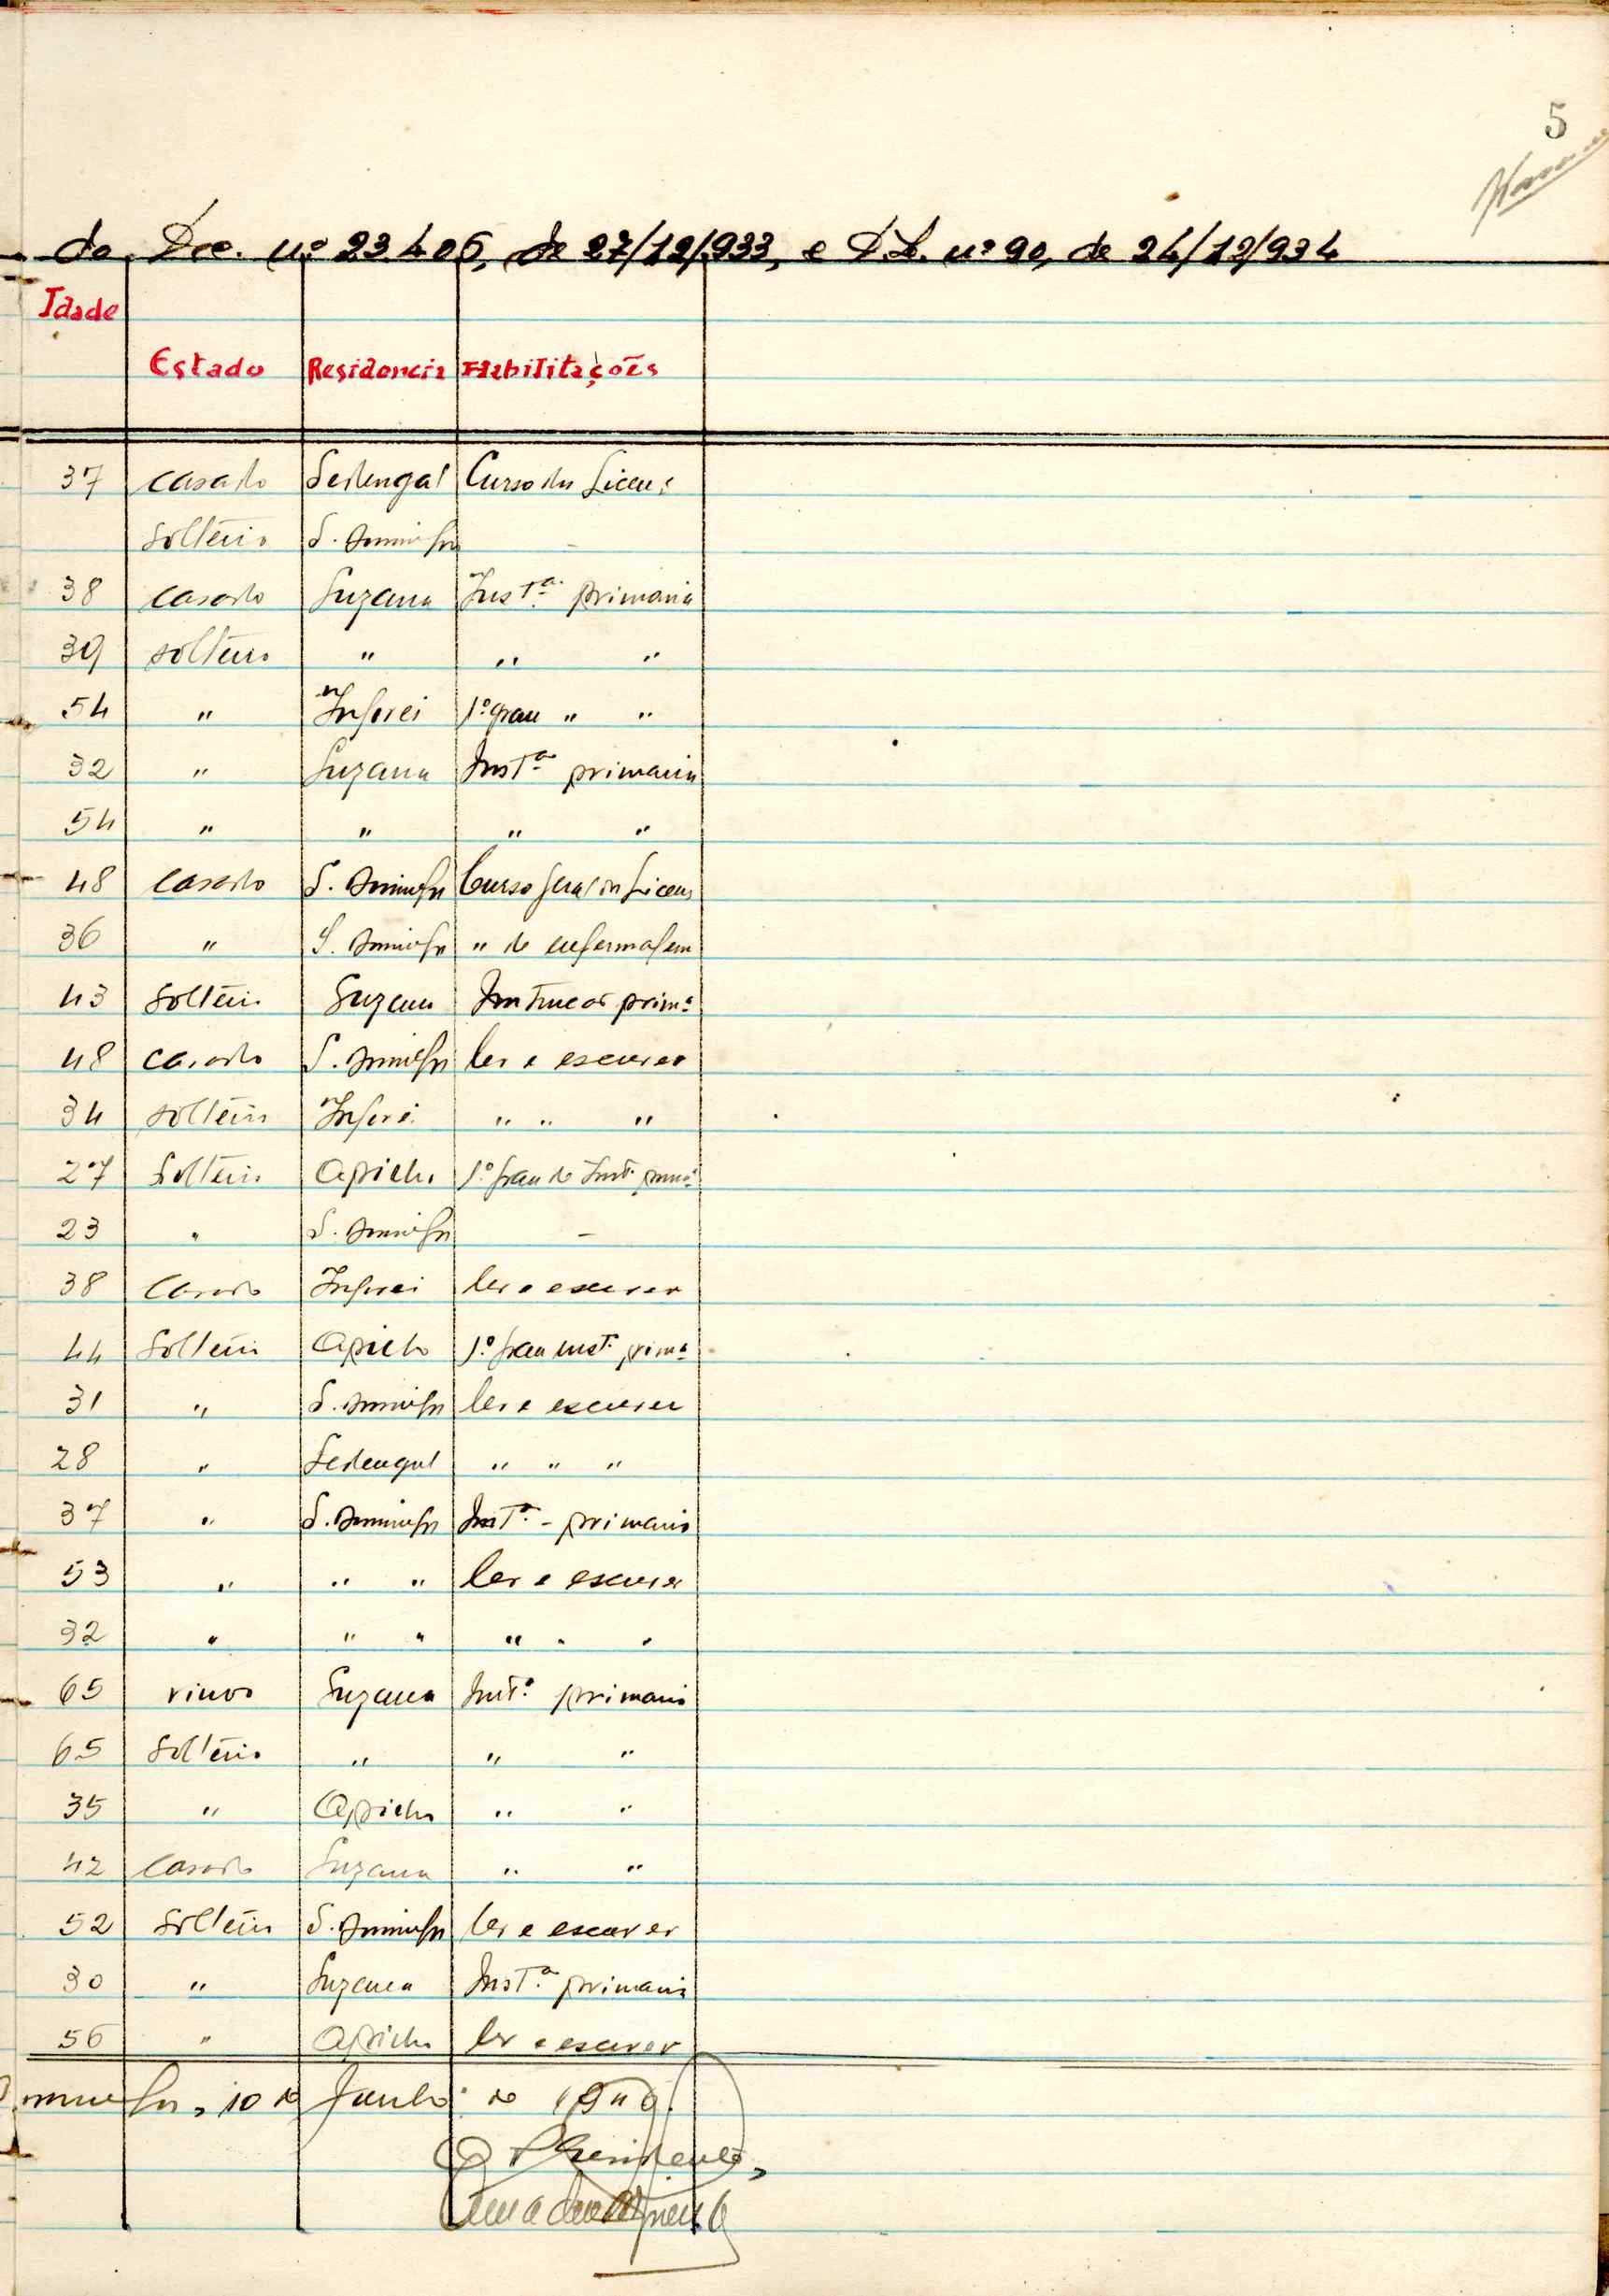 5
do Dec. nº 23.406, de 27/12/933, e D.L. nº 90, de 24/12/934
Idade
Estado Residencia Habilitações
37 casado Sedengal Curso dos Liceus
solteiro S. Domingos —
38 casado Suzana Instª primaria
39 solteiro " " "
54 " Inforei 1º grau " "
32 " Suzana Instª primaria
54 " " " "
48 casado S. Domingos Curso geral dos Liceus
36 " S. Domingos " de enfermagem
43 solteiro Suzana Instrução primª
48 casado S. Domingos ler e escrever
34 solteiro Inforei " " "
27 solteiro Apilho 1º grau de Inst. primª
23 " S. Domingos —
38 casado Inforei ler e escrever
44 solteiro Apilho 1º grau inst. primª
31 " S. Domingos ler e escrever
28 " Sedengal " " "
37 " S. Domingos Instª - primaria
53 " " " ler e escrever
32 " " " " " "
65 viuvo Suzana Instª primaria
65 solteiro " " "
35 " Apilho " "
42 casado Suzana " "
52 solteiro S. Domingos ler e escrever
30 " Suzana Instª primaria
56 " Apilho ler e escrever
, 10 de Junho de 194
O Presidente,